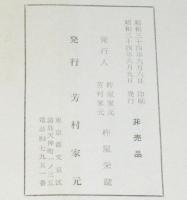 昭和三十四年六月六日 印刷
昭和三十四年六月九日 発行
非売品
発行人
杵屋家元
芳村家元
杵屋栄蔵
発行 芳村家元
東京都文京区
湯島天神町一ノ三五
電話
七九五一番